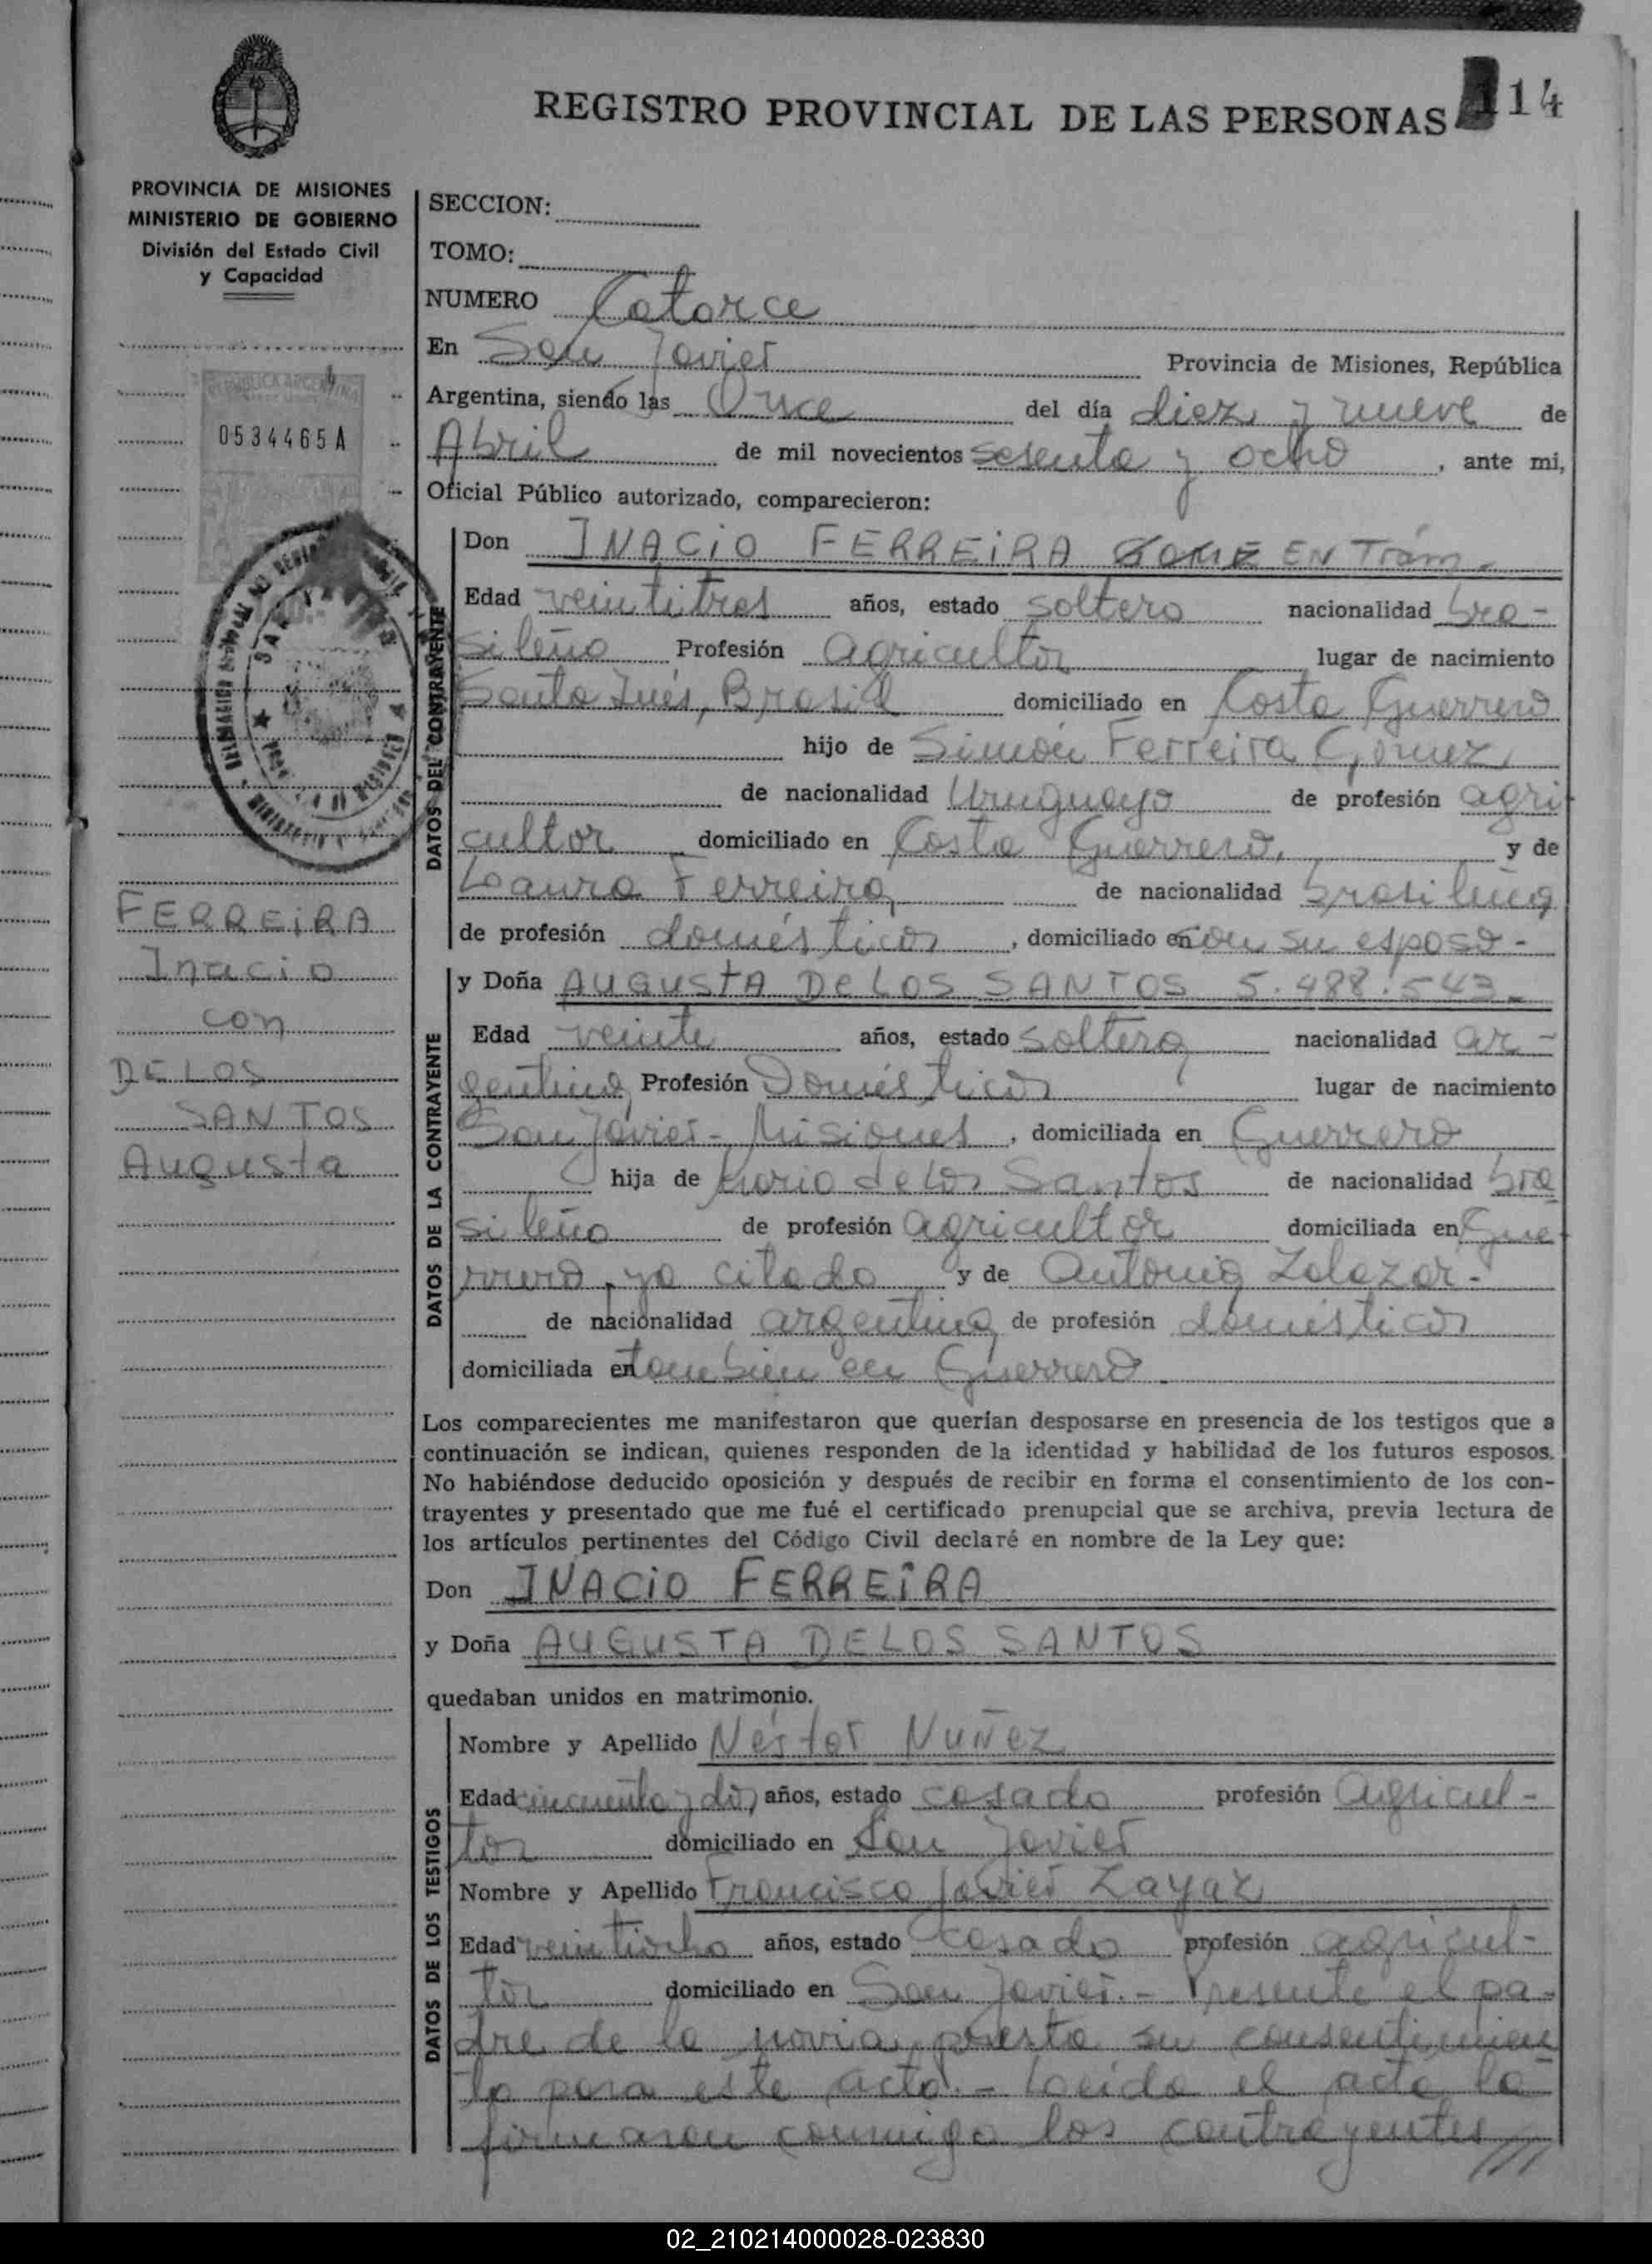 REGISTRO PROVINCIAL DE LAS PERSONAS 14
PROVINCIA DE MISIONES
MINISTERIO DE GOBIERNO
División del Estado Civil
y Capacidad
0534465A
FERREIRA
Inacio
con
DE LOS
SANTOS
Augusta
SECCION:
TOMO:
NUMERO Catorce
En San Javier Provincia de Misiones, República
Argentina, siendo las Once del día diez y nueve de
Abril de mil novecientos sesenta y ocho, ante mi,
Oficial Público autorizado, comparecieron:
DATOS DEL CONTRAYENTE
Don INACIO FERREIRA EN Trám.
Edad veintitres años, estado soltero nacionalidad bra-
sileño Profesión agricultor lugar de nacimiento
Santa Inés, Brasil domiciliado en Costa Guerrero
hijo de Simón Ferreira Gómez,
de nacionalidad Uruguayo de profesión agri
cultor domiciliado en Costa Guerrero, y de
Laura Ferreira, de nacionalidad brasileña
de profesión domésticos, domiciliado en con su esposo-
DATOS DE LA CONTRAYENTE
y Doña AUGUSTA DE LOS SANTOS 5.488.543-
Edad veinte años, estado soltera nacionalidad ar-
gentina Profesión Domésticos lugar de nacimiento
San Javier - Misiones, domiciliada en Guerrero
hija de Mario de los Santos de nacionalidad bra
sileño de profesión agricultor domiciliada en Gue
rrero, ya citado y de Antonia Zalazar.
de nacionalidad argentina de profesión domésticos
domiciliada en tambien en Guerrero
Los comparecientes me manifestaron que querían desposarse en presencia de los testigos que a
continuación se indican, quienes responden de la identidad y habilidad de los futuros esposos.
No habiéndose deducido oposición y después de recibir en forma el consentimiento de los con-
trayentes y presentado que me fué el certificado prenupcial que se archiva, previa lectura de
los artículos pertinentes del Código Civil declaré en nombre de la Ley que:
Don INACIO FERREIRA
y Doña AUGUSTA DE LOS SANTOS
quedaban unidos en matrimonio.
DATOS DE LOS TESTIGOS
Nombre y Apellido Néstor Nuñez
Edad cincuenta y dos años, estado casado profesión agricul-
tor domiciliado en San Javier
Nombre y Apellido Francisco Javier Zayaz
Edad veintiocho años, estado casado profesión agricul-
tor domiciliado en San Javier.- Presente el pa-
dre de la novia, presta su consentimien
to para este acto.- Leída el acta la
firmaron conmigo los contrayentes,
02_210214000028-023830